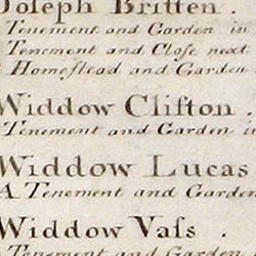 Joseph Britten .
Tenement and Garden in
Tenement and Close next
Homestead and Garden
Widdow Clifton .
Tenement and Garden in
Widdow Lucas
A Tenement and Garden
Widdow Vaſs .
Tenement and Garden